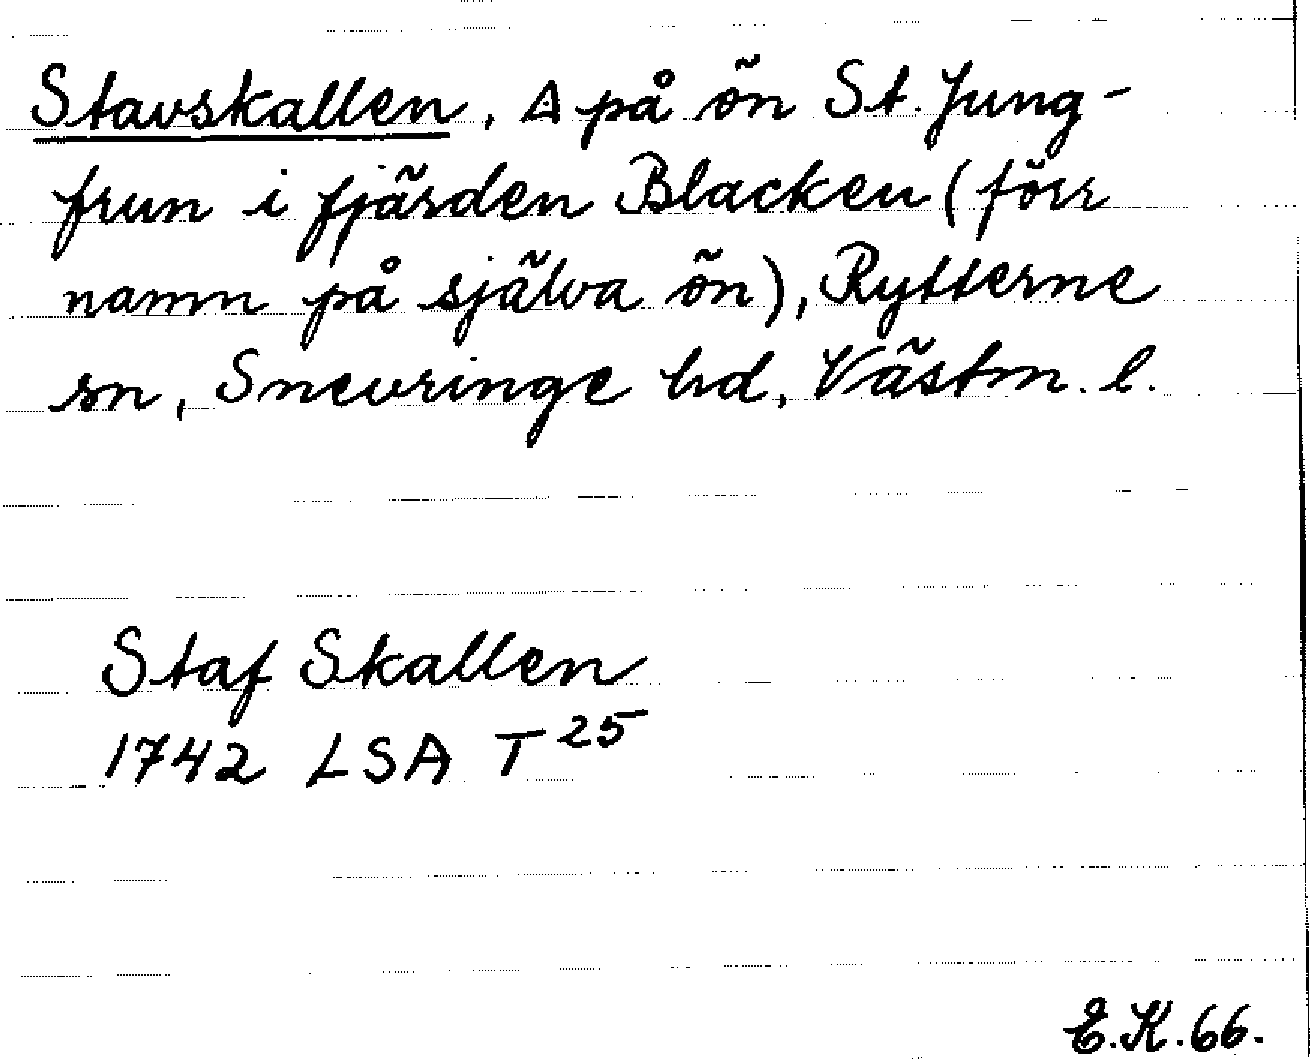 Stavskallen, △ på ön St. Jung-
frun i fjärden Blacken (förr
namn på själva ön), Rytterne
sn, Snevringe hd, Västm. l.
Staf Skallen
1742 LSA T 25
E.K. 66.